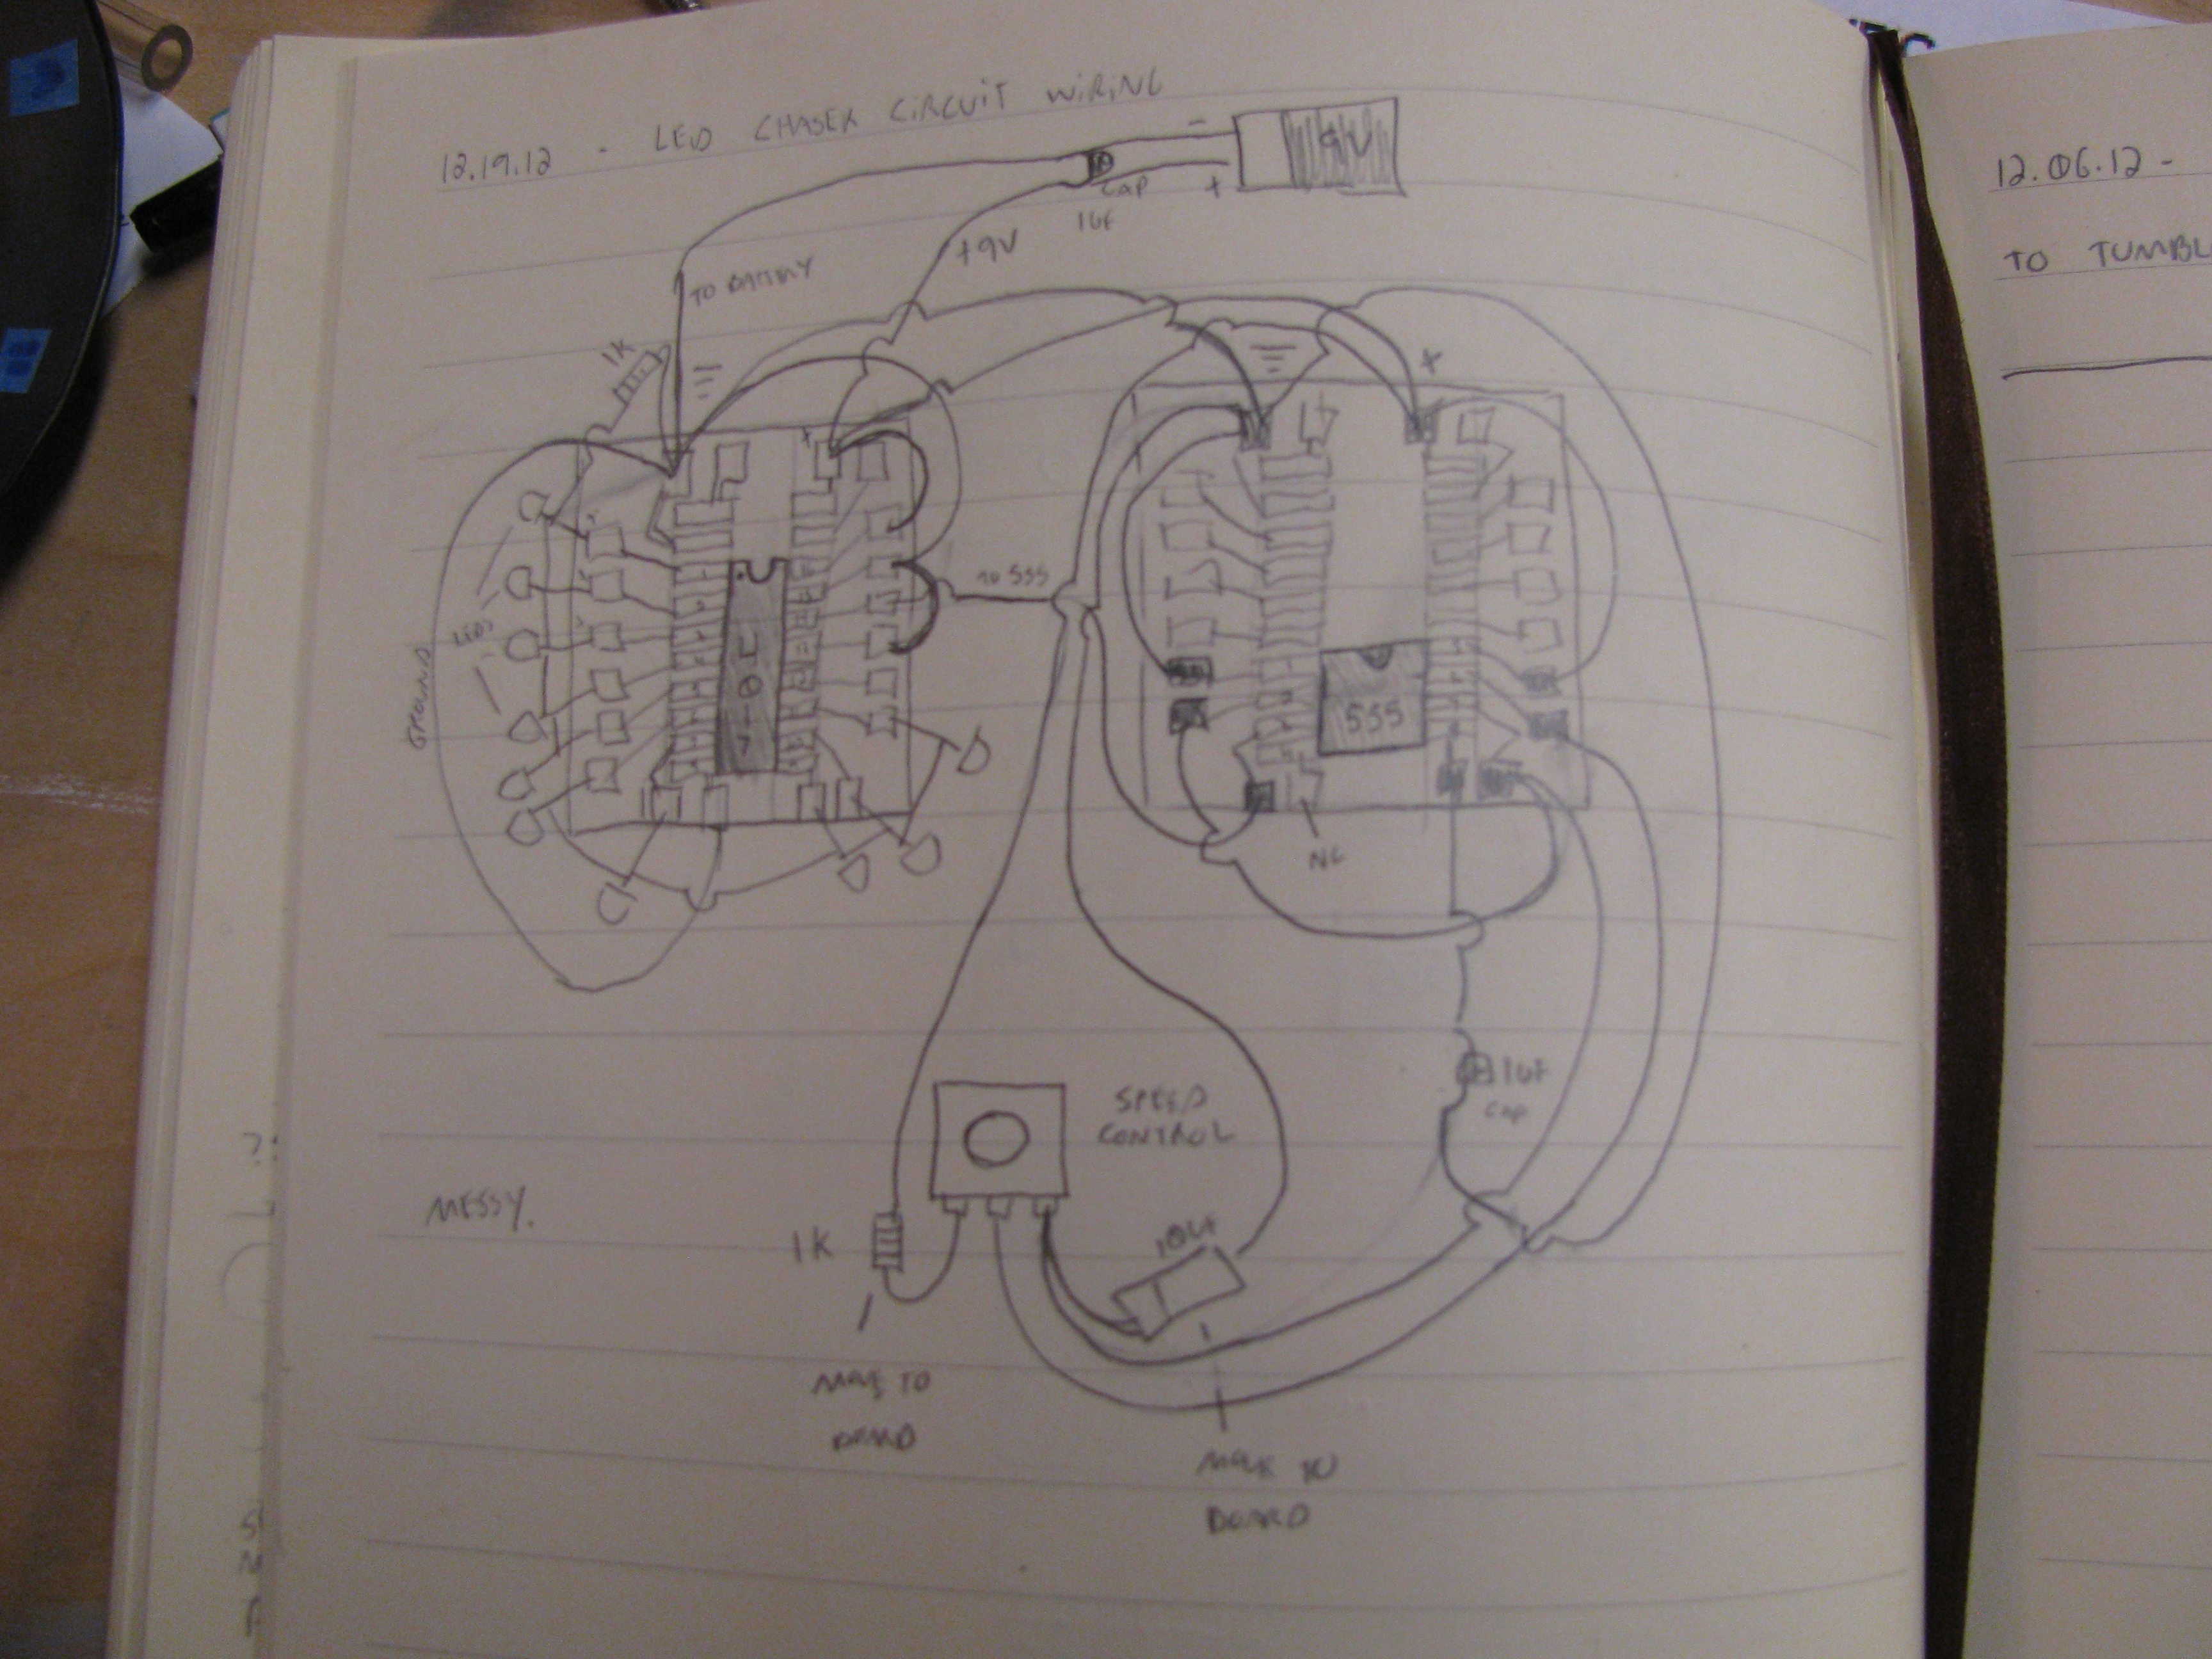 12.19.12 - LED CHASER CIRCUIT WIRING
- 9V
+
CAP
1uF
+9V
TO BATTERY
1K
+
+
TO 555
LEDs
GROUND
4017
555
NC
1uF
cap
SPEED
CONTROL
MESSY.
1K
10uF
MOVE TO
BOARD
MOVE TO
BOARD
12.06.12 -
TO TUMBL